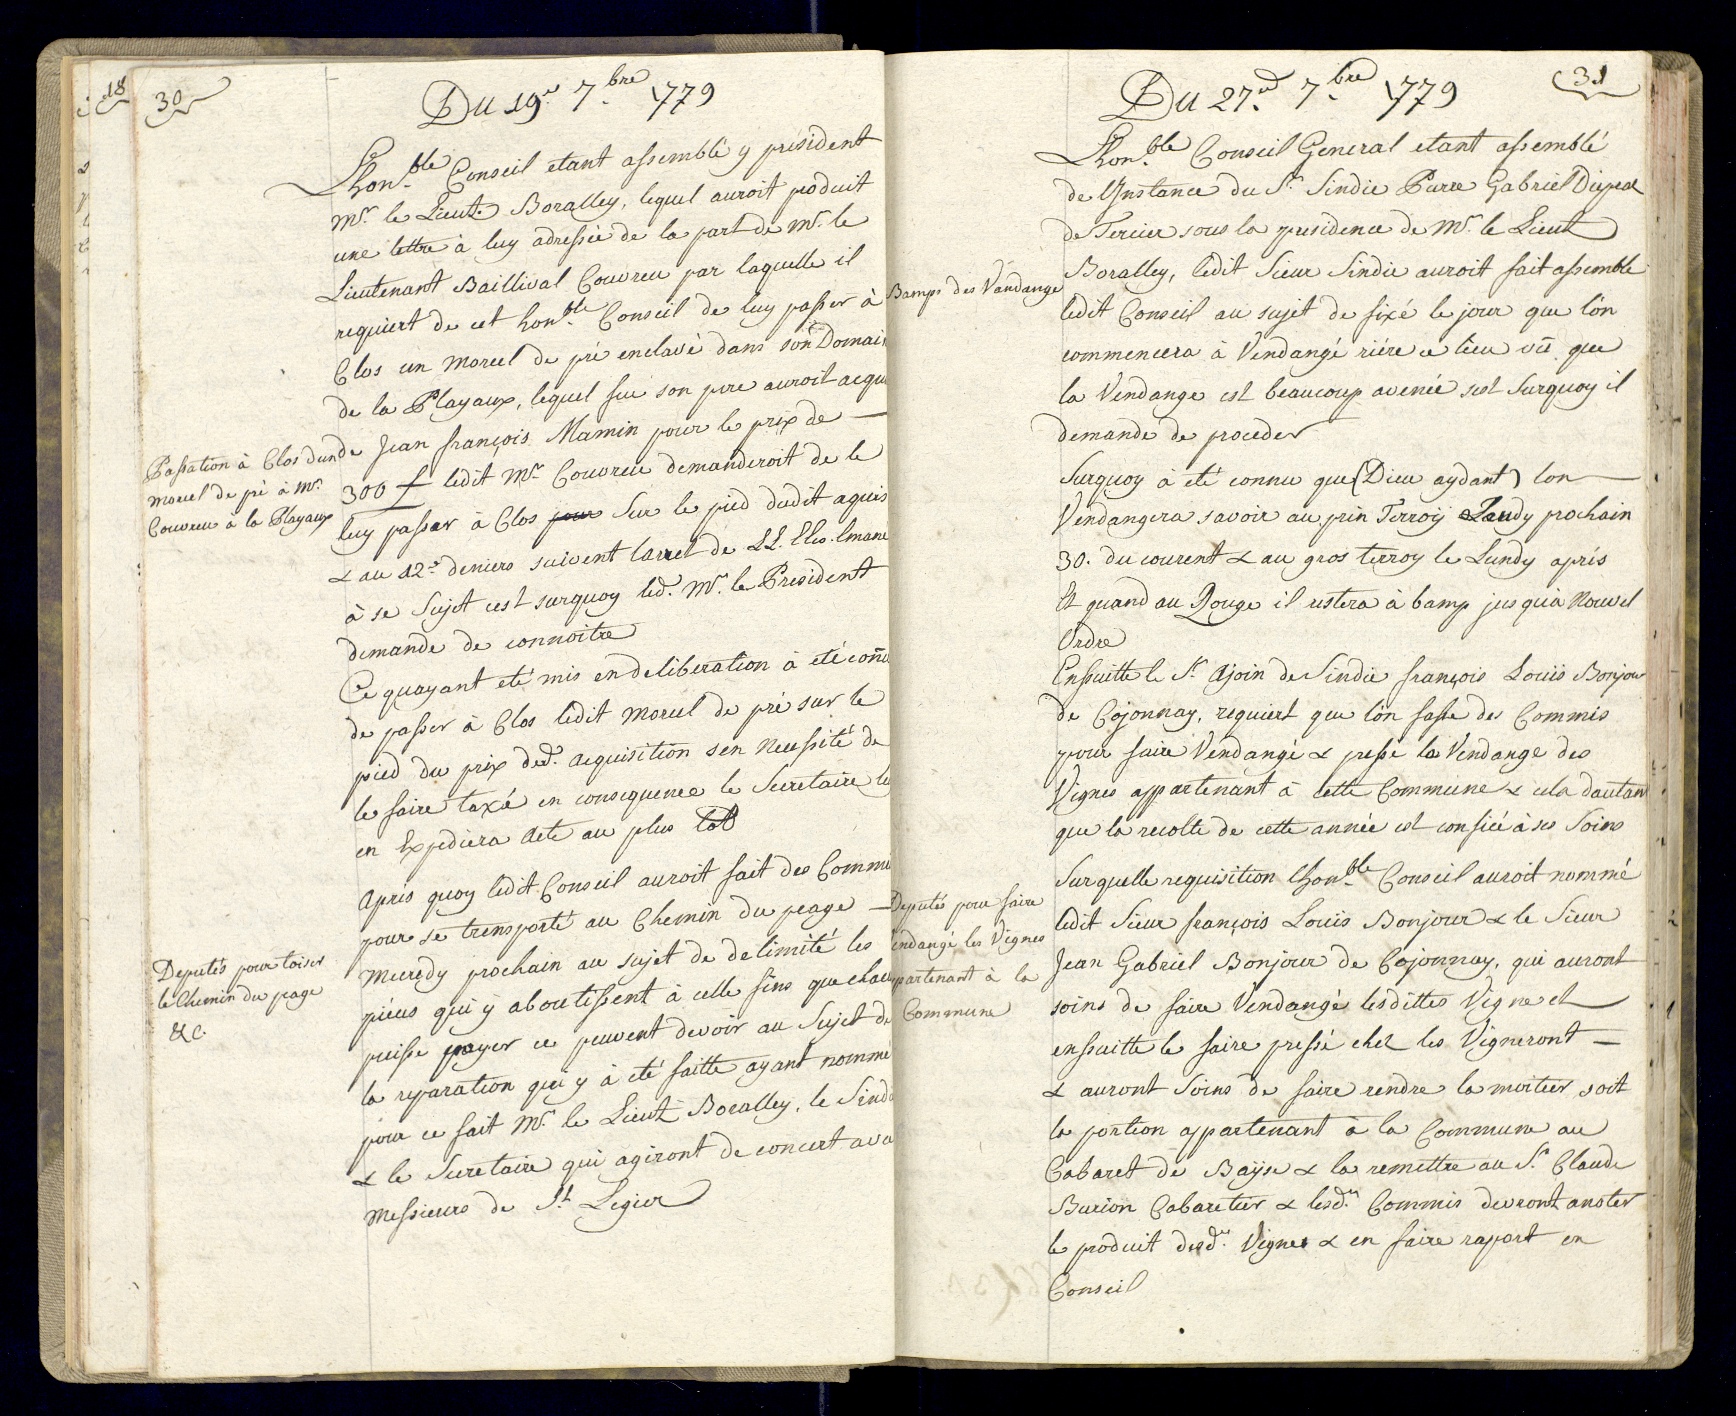 18
30
Du 19.e 7.bre 1779
Lhon.ble Conseil etant assemblé y président
Mr. le Lieut. Boralley, lequel auroit poduit
une lettre à luy adressée de la part de Mr. le
Lieutenant Baillival Couvreu par laquelle il
requiert de cet hon.ble Conseil de luy passer à
Clos un morcel de pré enclavé dans son Domai
de la Playaux, lequel feu son pere auroit acqui
Passation à Clos dun
morcel de pré à Mr.
Couvreu à la Playaux
de Jean françois Mamin pour le prix de —
300 f ledit Mr. Couvreu demanderoit de le
luy passer à Clos pour Sur le pied dudit aquis
& au 12.e deniers suivent larret de LL. EEce. Emané
à se Sujet cest surquoy led. Mr. le President
demande de connoitre
Ce quayant eté mis en deliberation à eté coñu
de passer à Clos ledit morcel de pré sur le
pied du prix ded. acquisition sen necessité de
le faire taxé en consequence le Secretaire le
en Expediera Acte au plus tot
Après quoy ledit Conseil auroit fait des Commi
pour se transporté au Chemin du peage —
Deputés pour toiser
le Chemin du peage
&c.
mecredy prochain au sujet de delimité les
pieces qui y aboutissent à celle fins que chacu
puisse payer ce peuvent devoir au Sujet de
la reparation qui y à eté faitte ayant nommé
pour ce fait Mr. le Lieut. Boralley, le Sindi
& le Secretaire qui agiront de concert ave
Messieurs de St Legier
31
Du 27.e 7.bre 1779
Lhon.ble Conseil General etant assemblé
de l'Instance du Sr. Sindic Pierre Gabriel Dupra
de Tercier sous la presidence de Mr. le Lieut
Bamps des Vandange
Boralley, ledit Sieur Sindic auroit fait assemblé
ledit Conseil au sujet de fixé le jour que l'on
commencera à Vendangé riére ce lieu vû que
la Vendange est beaucoup avencé cest Surquoy il
demande de proceder
Surquoy à eté connu que (Dieu aydant) lon —
Vendangera savoir au prin Terroy Jeudy prochain
30. du courent & au gros terroy le Lundy après
Et quand au Rouge il restera à bamp jusquà Nouvel
Ordre
Ensuitte le Sr. Ajoin de Sindic françois Louïs Bonjour
de Cojonnay, requiert que l'on fasse des Commis
pour faire Vendangé & pressé la Vendange des
Vignes appartenant à cette Commune & cela dautan
que la recolte de cette année est confiée à ses Soins
Deputés pour faire
endangé les Vignes
partenant à la
Commune
Sur quelle requisition Lhon.ble Conseil auroit nommé
ledit Sieur françois Louïs Bonjour & le Sieur
Jean Gabriel Bonjour de Cojonnay, qui auront
soins de faire Vendangé lesdittes Vigne et
ensuitte le faire pressé chez les Vigneront —
& auront Soins de faire rendre la moitier soit
la portion appartenant à la Commune au
Cabaret de Baÿse & la remettre au Sr. Claude
Burion Cabaretier & lesd. Commis devront anoter
le produit desd. Vignes & en faire raport en
Conseil